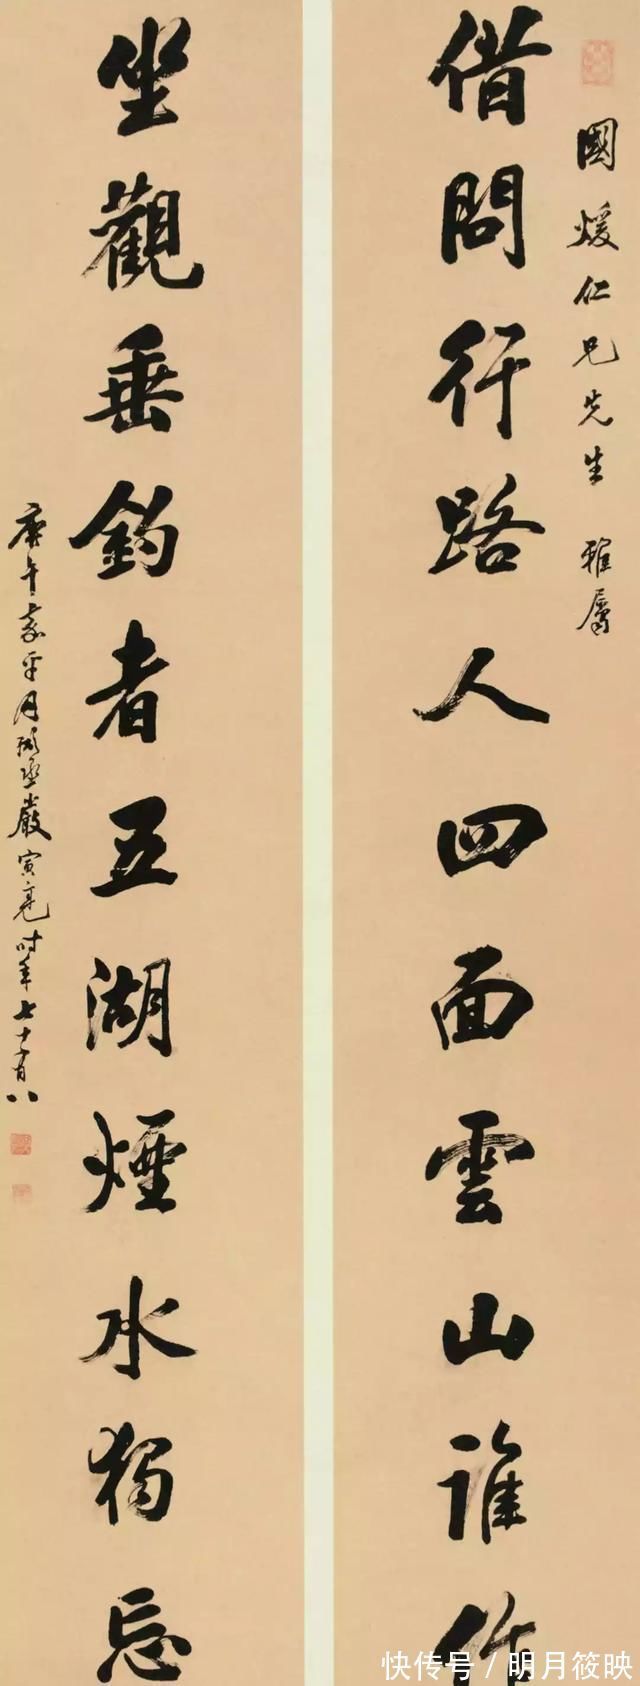 國煖仁兄先生 雅屬
借問行路人四面雲山誰作
坐觀垂釣者五湖煙水獨忘
庚午嘉平月 嚴寅亮時年七十有八
快传号/明月筱映